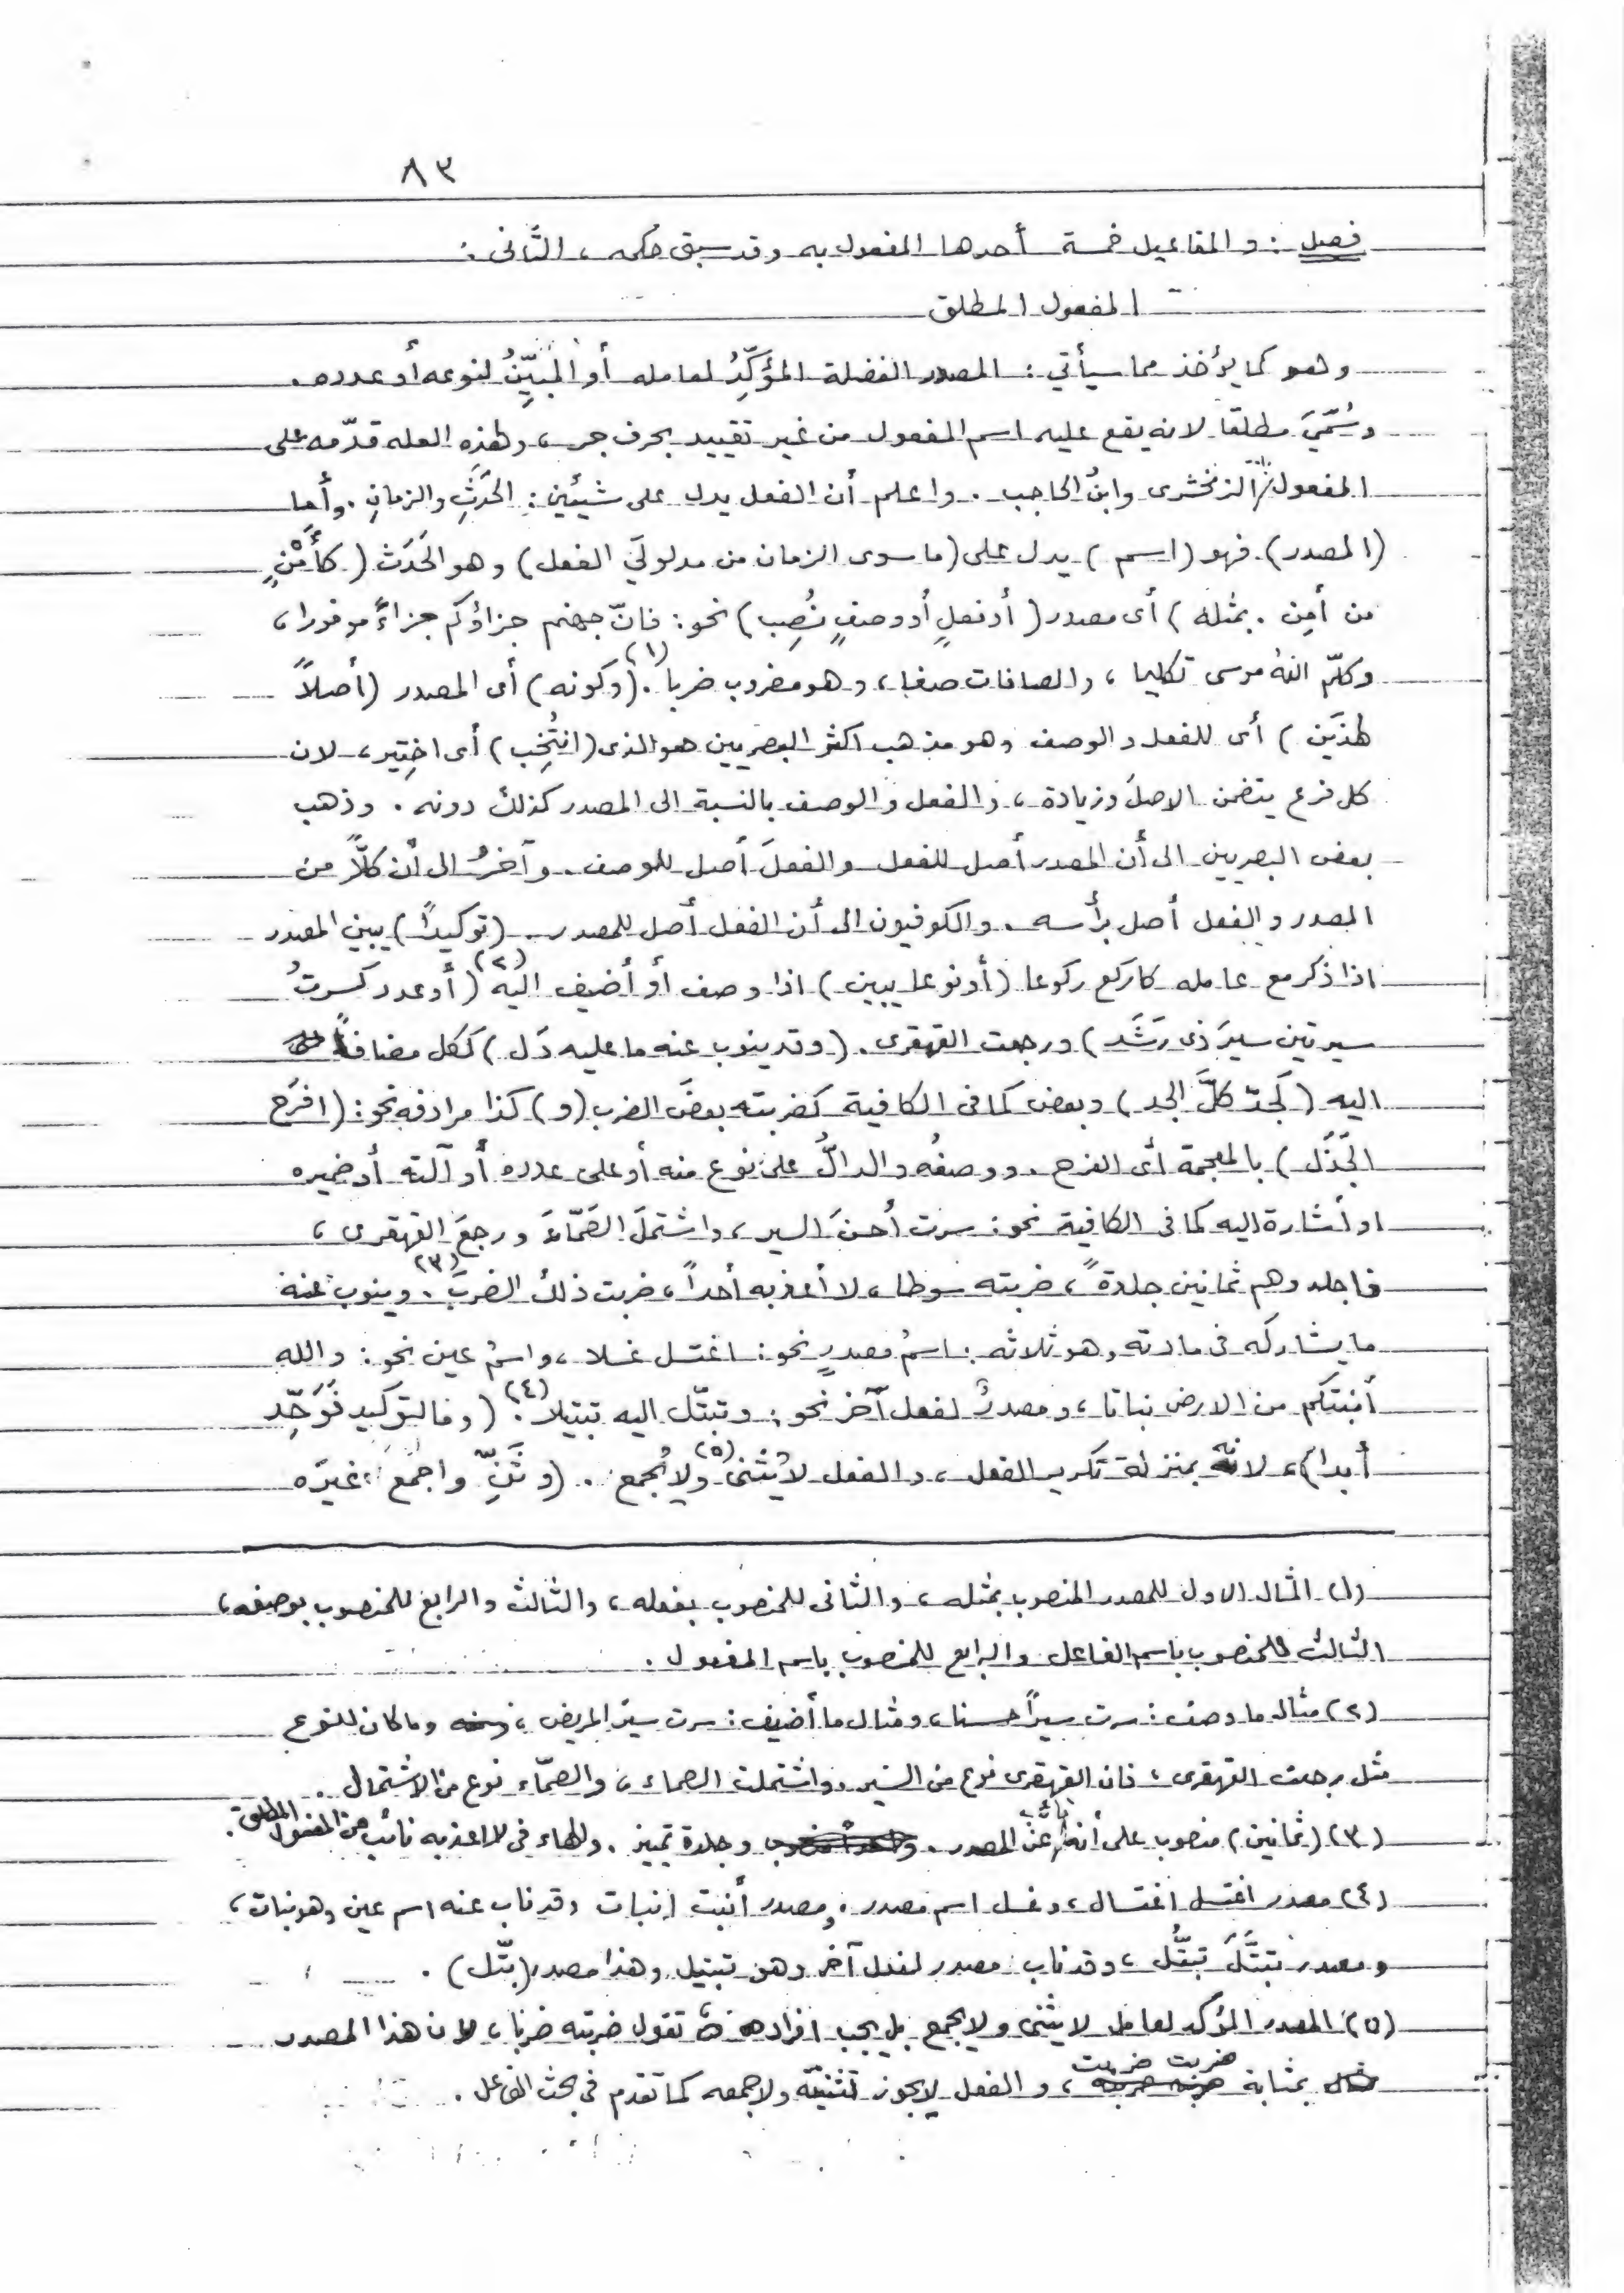 ٨٣
فصل : والمفاعيل خمسة أحدها المفعول به وقد سبق حكمه ، الثَّانى :
المفعول المطلق
وهو كما يؤخذ مما سيأتي : المصدر الفضلة المؤَكِّدُ لعامله أو المبيِّنُ لنوعه أو عدده .
وسُمِّيَ مطلقا لانه يقع عليه اسم المفعول من غير تقييد بحرف جر ، ولهذه العله قدّمه على
المفعول به الزمخشرى وابنُ الحاجب . واعلم أن الفعل يدل على شيئين : الحَدَثِ والزمانِ . وأما
(المصدر) فهو (اسم) يدل على (ما سوى الزمان من مدلولَيِ الفعل) وهو الحَدَث (كأَمْنٍ
من أمِن . بمثله) أى مصدر (أو فعلٍ أو وصفٍ نُصِب) نحو : فانّ جهنم جزاؤكم جزاءً موفورا ،
وكلّم اللهُ موسى تكليما ، والصافات صفا ، وهو مضروب ضربا (١) . (وكونه) أى المصدر (أصلاً
لهذَين) أى للفعل والوصف وهو مذهب اكثر البصريين هو الذى (انتُخِب) أى اختِير ، لان
كل فرع يتضمن الاصلَ وزيادة ، والفعل والوصف بالنسبة الى المصدر كذلك دونه . وذهب
بعض البصريين الى أن المصدر أصل للفعل والفعلَ أصل للوصف . وآخرُ الى أن كلاًّ من
المصدر والفعل أصل برأسه . والكوفيون الى أن الفعل أصل للمصدر . (توكيدًا) يبين المصدر
اذا ذكر مع عامله كاركع ركوعا (أو نوعا يبين) اذا وصف أو أضيف اليه (٢) (أو عدد كسرتُ
سيرتين سيرَ ذى رَشَد) ورجعت القهقرى . (وقد ينوب عنه ما عليه دَل) ككل مضافاً
اليه (كجدّ كلَّ الجد) وبعض كما فى الكافية كضربته بعضَ الضرب (و) كذا مرادفه نحو : (افرَح
الجَذَل) بالمعجمة أى الفرح . ووصفُه والدالُّ على نوع منه أو على عدده أو آلته أو ضميره
او اشارة اليه كما فى الكافية نحو : سرت أحسنَ السير ، واشتمل الصَمّاءَ ورجعَ القهقرى ،
فاجلدوهم ثمانين جلدةً ، ضربته سوطا ، لا أعذبه أحداً ، ضربت ذلك الضربَ (٣) . وينوب عنه
ما يشاركه فى مادته وهو ثلاثه : اسمُ مصدرٍ نحو : اغتسل غسلا ، واسمُ عين نحو : والله
أنبتكم من الارض نباتا ، ومصدرُ لفعل آخر نحو : وتبتّل اليه تبتيلا (٤) . (وما لتوكيد فَوَحِّد
أبدا) ، لانه بمنزلة تكرير الفعل ، والفعل لا يُثنى ولا يُجمع (٥) . (وثَنِّ واجمَع غيرَه
(١) المثال الاول للمصدر المنصوب بمثله ، والثانى للمنصوب بفعله ، والثالث والرابع للمنصوب بوصفه ،
الثالث للمنصوب باسم الفاعل والرابع للمنصوب باسم المفعول .
(٢) مثاله ما وصف : سرت سيراً حسنا ، ومثال ما أضيف : سرت سيرَ المريض ، ومنه وما كان للنوع
مثل رجعت القهقرى ، فان القهقرى نوع من السَير . واشتملت الصماء ، والصمّاء نوع من الاشتمال .
(٣) (ثمانين) منصوب على أنه نائب عن المصدر . وجلدة تمييز . والهاء فى لا اعذبه نائب عن المفعول المطلق .
(٤) مصدر اغتسل اغتسال ، وغسل اسم مصدر . ومصدر أنبت إنبات وقد ناب عنه اسم عين وهو نبات ،
ومصدر تبتَّلَ تبتُّل ، وقد ناب مصدر لفعل آخر وهو تبتيل وهذا مصدر (بتّل) .
(٥) المصدر المؤكد لعامل لا يثنى ولا يجمع بل يجب افراده تقول ضربته ضربا ، لان هذا المصدر
بمثابة ضربت ضربت ، والفعل لا يجوز تثنيته ولا جمعه كما تقدم فى بحث الفاعل .